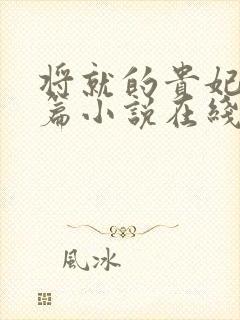 将就的貴妃
篇小說在綫
風冰